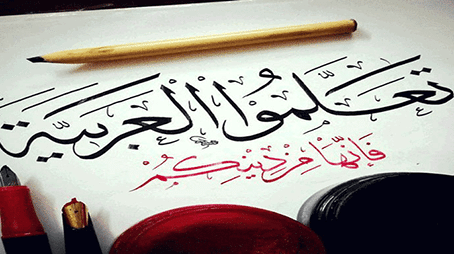 تعلموا العربية
فَإِنَّهَا مِنْ دِينِكُمْ